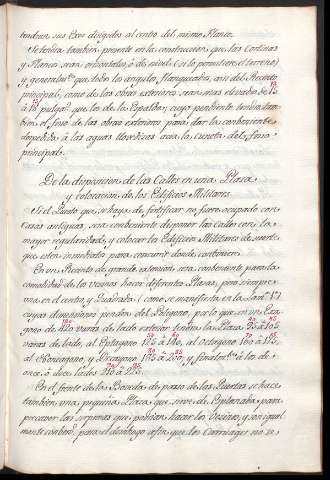 tendran sus Exes dirigidos al centro del mismo Flanco.
Se tendra tambien presente en la construccion que las Cortinas
y Flancos sean orizontales, ó de nivel (si lo permitiere el terreno)
y generalm.te que todos los angulos flanqueados, asi del Recinto
principal, como de las obras exteriores sean mas elevados de 12
à 18 pulgad. que los de la Espalda; cuya pendiente tendra tam-
bien el foso de las obras exteriores para dar la conbeniente
despedida à las aguas llovedizas acia la cuneta del foso
principal.
De la disposicion de las Calles en una Plaza
y colocacion de los Edificios Militares
Si el Puesto que se haya de fortificar no fuere ocupado con
Casas antiguas, sera conbeniente disponer las calles con la
mayor regularidad, y colocar los Edificios Militares de suerte
que esten inmediatos para concurrir donde combiniere.
En un Recinto de grande extension sera conbeniente para la
comodidad de los vecinos hacer diferentes Plazas, pero siempre
una en el centro, y Quadrada (como se manifiesta en la Lam.
cuyas dimensiones penden del Poligono, por lo que en un Exa-
gono de varas de lado exterior tendra la Plaza 95 à 106
varas de lado, al Eptagono 125 à 140, al octagono 160 à 175,
al Eoneagono, y Decagono 185 à 200; y finalm.te à los de
once, ó doce lados 210 à 225.
En el frente de la Boveda de paso de las Puertas se hace
tambien una pequeña Plaza que sirve de Esplanada para
precaver las sorpresas que podrian hacer los Vecinos; y son igual
mente conben.s para el desahogo afin que los Carruages no se